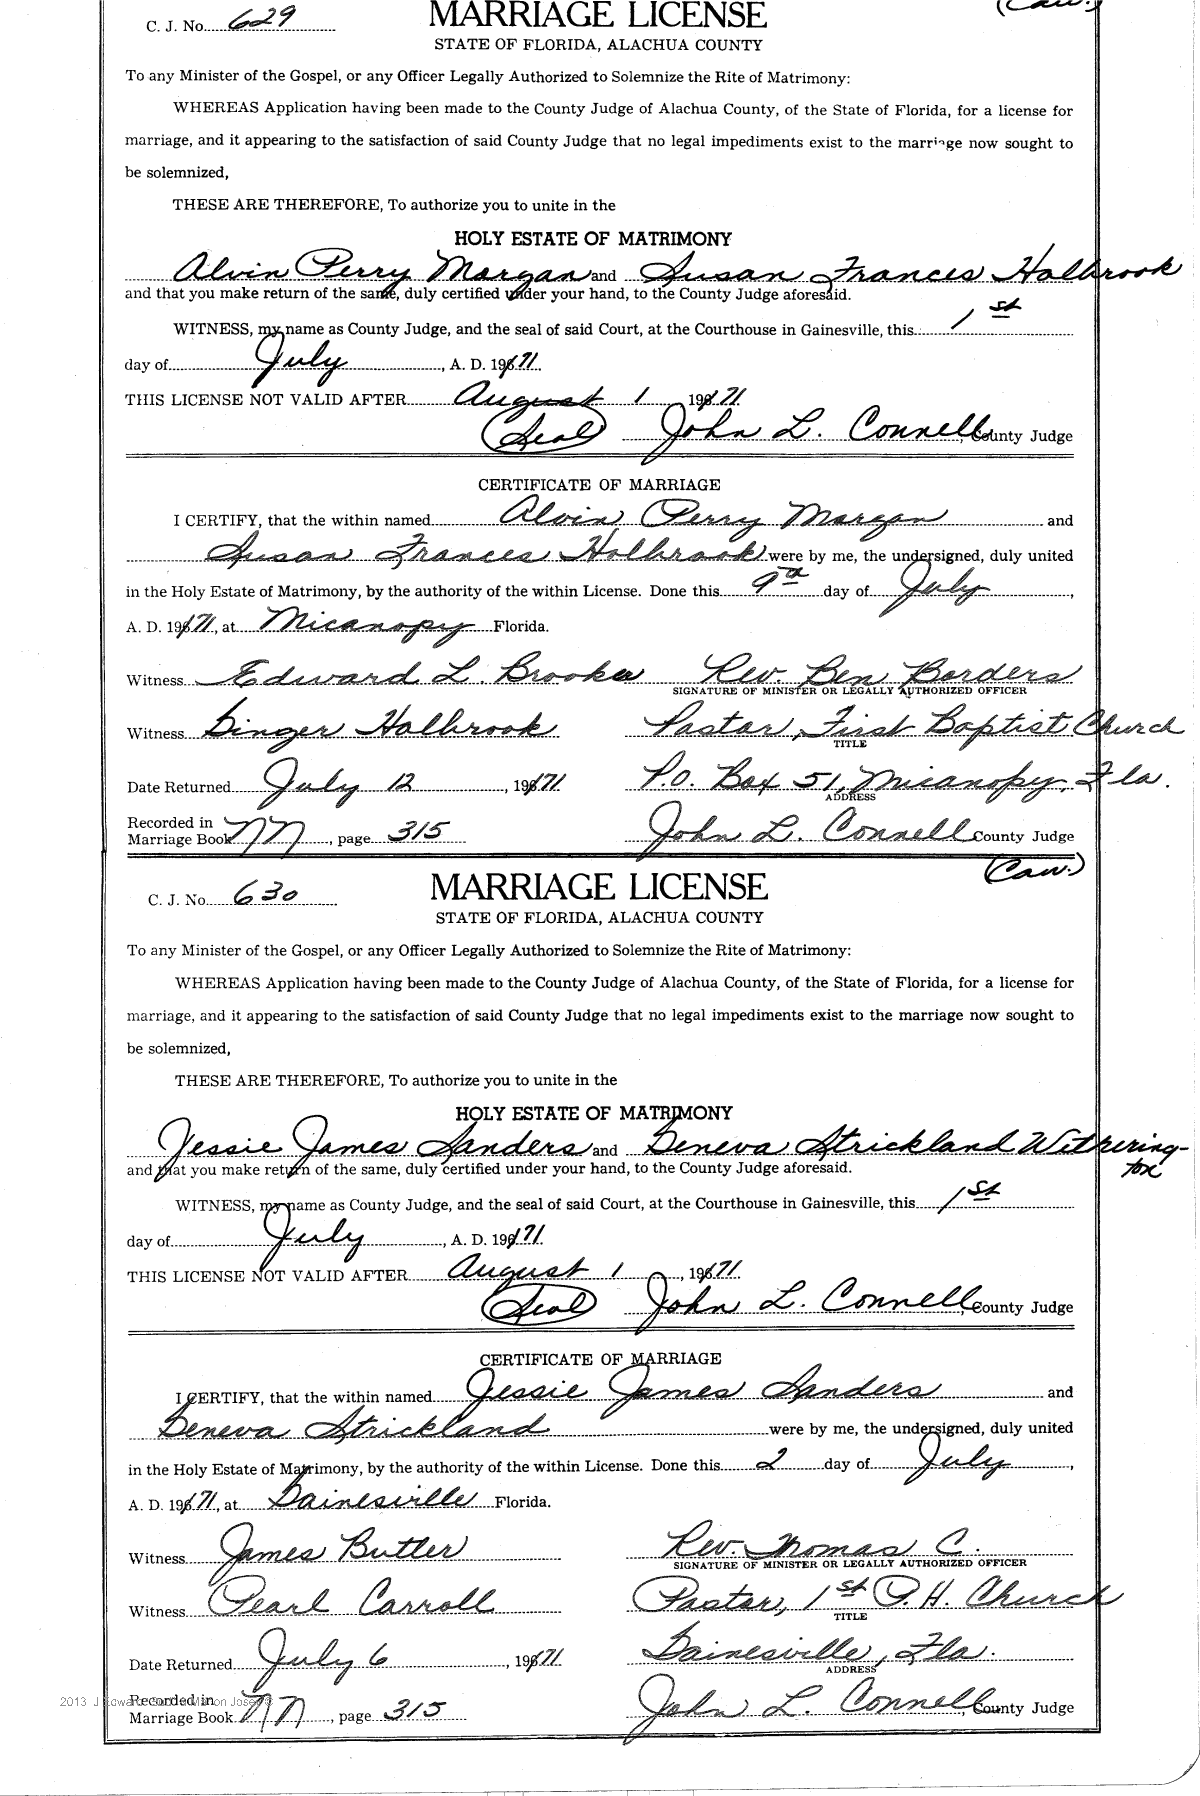 (Caw.)
C. J. No. 629 MARRIAGE LICENSE
STATE OF FLORIDA, ALACHUA COUNTY
To any Minister of the Gospel, or any Officer Legally Authorized to Solemnize the Rite of Matrimony:
WHEREAS Application having been made to the County Judge of Alachua County, of the State of Florida, for a license for
marriage, and it appearing to the satisfaction of said County Judge that no legal impediments exist to the marriage now sought to
be solemnized,
THESE ARE THEREFORE, To authorize you to unite in the
HOLY ESTATE OF MATRIMONY
Alvin Perry Morgan and Susan Frances Holbrook
and that you make return of the same, duly certified under your hand, to the County Judge aforesaid.
WITNESS, my name as County Judge, and the seal of said Court, at the Courthouse in Gainesville, this 1st
day of July, A. D. 1971.
THIS LICENSE NOT VALID AFTER August 1 1971
(Seal) John L. Connell, County Judge
CERTIFICATE OF MARRIAGE
I CERTIFY, that the within named Alvin Perry Morgan and
Susan Frances Holbrook were by me, the undersigned, duly united
in the Holy Estate of Matrimony, by the authority of the within License. Done this 9th day of July,
A. D. 1971, at Micanopy Florida.
Witness Edward L. Brooke Rev. Ben Borders
SIGNATURE OF MINISTER OR LEGALLY AUTHORIZED OFFICER
Witness Ginger Holbrook Pastor, First Baptist Church
TITLE
Date Returned July 12, 1971 P.O. Box 51, Micanopy, Fla.
ADDRESS
Recorded in
Marriage Book NN, page 315 John L. Connell County Judge
(Caw.)
C. J. No. 630 MARRIAGE LICENSE
STATE OF FLORIDA, ALACHUA COUNTY
To any Minister of the Gospel, or any Officer Legally Authorized to Solemnize the Rite of Matrimony:
WHEREAS Application having been made to the County Judge of Alachua County, of the State of Florida, for a license for
marriage, and it appearing to the satisfaction of said County Judge that no legal impediments exist to the marriage now sought to
be solemnized,
THESE ARE THEREFORE, To authorize you to unite in the
HOLY ESTATE OF MATRIMONY
Jessie James Sanders and Geneva Strickland Withering-
ton
and that you make return of the same, duly certified under your hand, to the County Judge aforesaid.
WITNESS, my name as County Judge, and the seal of said Court, at the Courthouse in Gainesville, this 1st
day of July, A. D. 1971.
THIS LICENSE NOT VALID AFTER August 1, 1971
(Seal) John L. Connell, County Judge
CERTIFICATE OF MARRIAGE
I CERTIFY, that the within named Jessie James Sanders and
Geneva Strickland were by me, the undersigned, duly united
in the Holy Estate of Matrimony, by the authority of the within License. Done this 2 day of July,
A. D. 1971, at Gainesville Florida.
Witness James Butler Rev. Thomas C.
SIGNATURE OF MINISTER OR LEGALLY AUTHORIZED OFFICER
Witness Pearl Carroll Pastor, 1st P.H. Church
TITLE
Date Returned July 6, 1971 Gainesville, Fla.
ADDRESS
Recorded in
Marriage Book NN, page 315 John L. Connell, County Judge
2013 J Edward